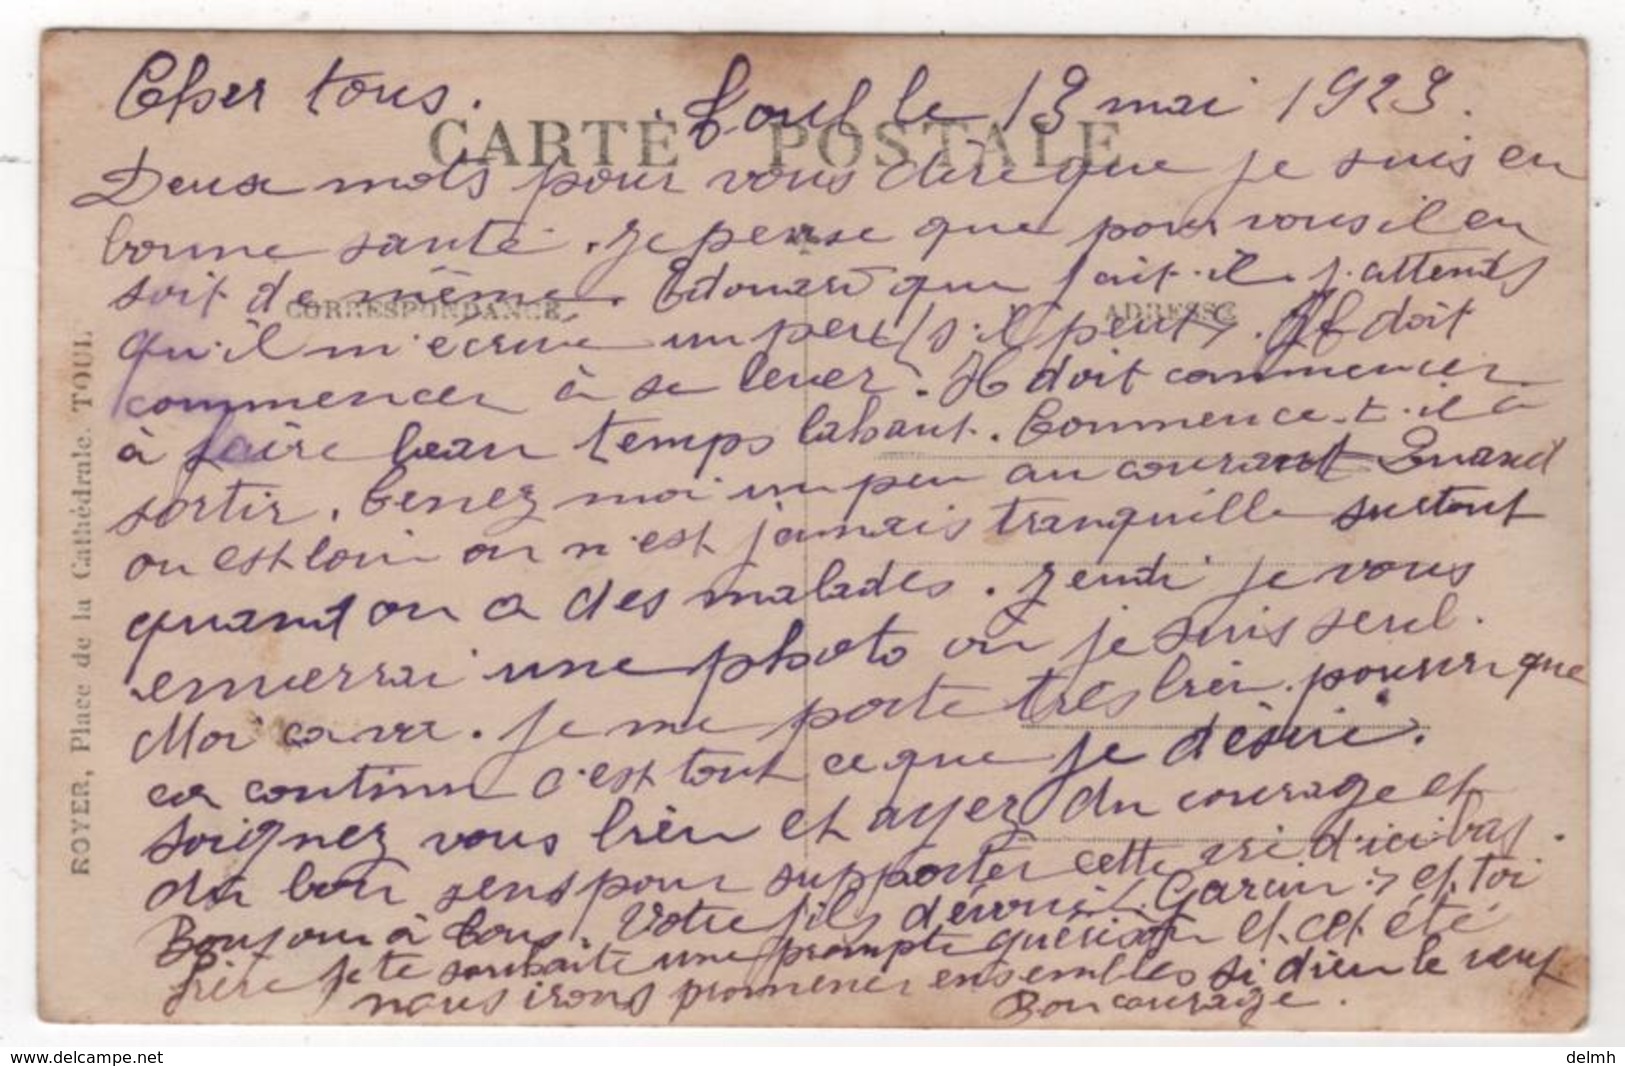 Cher tous. Toul le 13 mai 1923.
CARTE POSTALE
Deux mots pour vous dire que je suis en
bonne santé. Je pense que pour vous il en
soit de même. Edouard que fait-il. j'attends
CORRESPONDANCE
ADRESSE
qu'il m'écrive un peu (s'il peut). Il doit
commencer à se lever. Il doit commencer
à faire beau temps labaut. Commence-t-il a
sortir. Tenez moi un peu au courant Quand
on est loin on n'est jamais tranquille surtout
quand on a des malades. Jeudi je vous
enverrai une photo ou je suis seul.
Moi ca va. Je me porte tres bien. pourvu que
ca continu c'est tout ce que je désire.
Soignez vous bien et ayez du courage et
du bon sens pour supporter cette vie d'ici bas.
Bonjour à tous. Votre fils dévoué (Garcin) et toi
frère je te souhaite une prompte guerison et cet été
nous irons promener ensembles si dieu le veut
Bon courage.
ROYER, Place de la Cathédrale. TOUL
www.delcampe.net
delmh